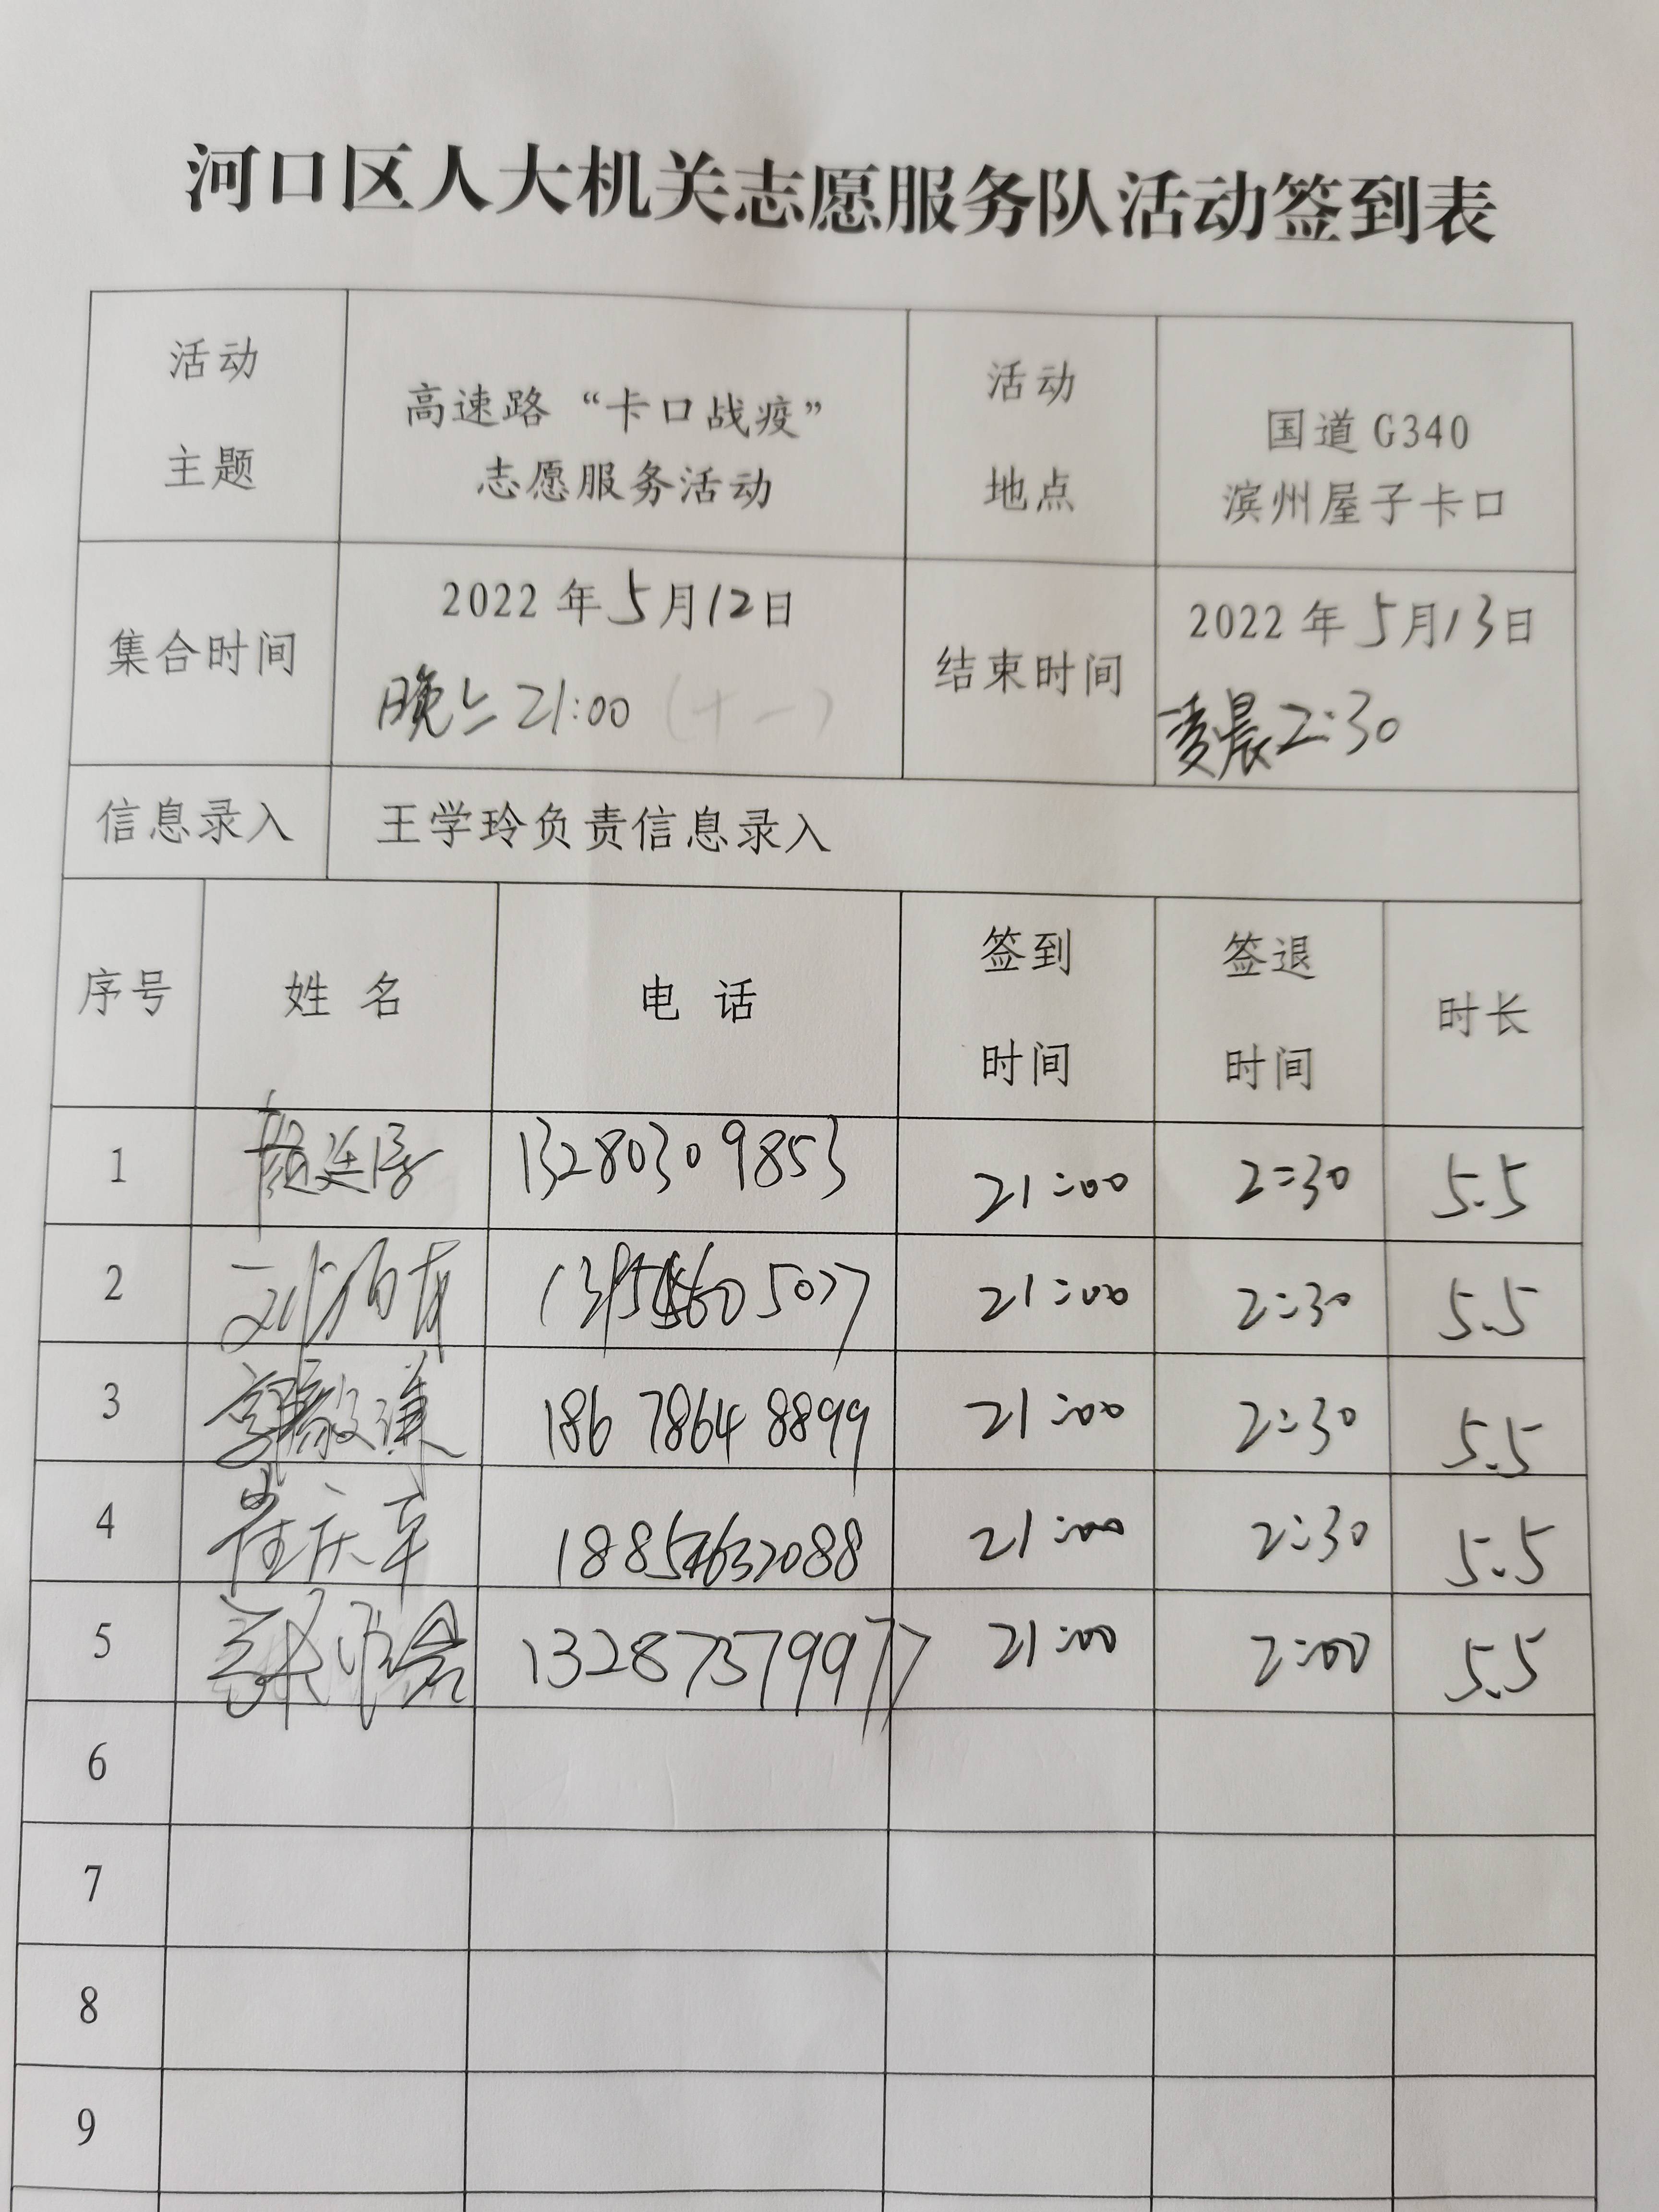 河口区人大机关志愿服务队活动签到表
活动 主题
高速路“卡口战疫”
志愿服务活动
活动 地点
国道 G340
滨州屋子卡口
集合时间
2022 年 5月12日
晚上 21:00 (十一)
结束时间
2022 年 5月13日
凌晨2:30
信息录入 王学玲负责信息录入
序号 姓 名 电 话 签到时间 签退时间 时长
1 13280309853 21:00 2:30 5.5
2 21:00 2:30 5.5
3 186 7864 8899 21:00 2:30 5.5
4 崔庆军 21:00 2:30 5.5
5 13287379977 21:00 2:00 5.5
6
7
8
9